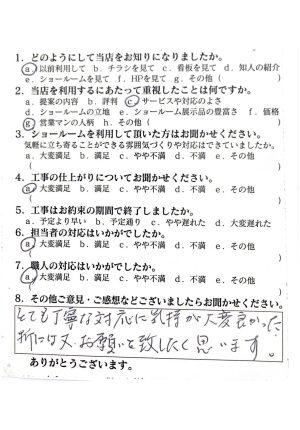 1. どのようにして当店をお知りになりましたか。
a. 以前利用して b. チラシを見て c. 看板を見て d. 知人の紹介
e. ショールームを見て f. HPを見て g. その他（　　　）
2. 当店を利用するにあたって重視したことは何ですか。
a. 提案の内容 b. 評判 c. サービスや対応のよさ
d. ショールームの立地 e. ショールーム展示品の豊富さ f. 価格
g. 営業マンの人柄 h. その他（　　　）
3. ショールームを利用して頂いた方はお聞かせください。
気軽に立ち寄ることができる雰囲気づくりや対応はできていましたか。
a. 大変満足 b. 満足 c. やや不満 d. 不満 e. その他
（　　　）
4. 工事の仕上がりについてお聞かせください。
a. 大変満足 b. 満足 c. やや不満 d. 不満 e. その他
（　　　）
5. 工事はお約束の期間で終了しましたか。
a. 予定より早い b. 予定通り c. やや遅れた d. 大変遅れた
6. 担当者の対応はいかがでしたか。
a. 大変満足 b. 満足 c. やや不満 d. 不満 e. その他
（　　　）
7. 職人の対応はいかがでしたか。
a. 大変満足 b. 満足 c. やや不満 d. 不満 e. その他
（　　　）
8. その他ご意見・ご感想などございましたらお聞かせください。
とても丁寧な対応に気持が大変良かった
折には又お願いを致したく思います。
ありがとうございます。